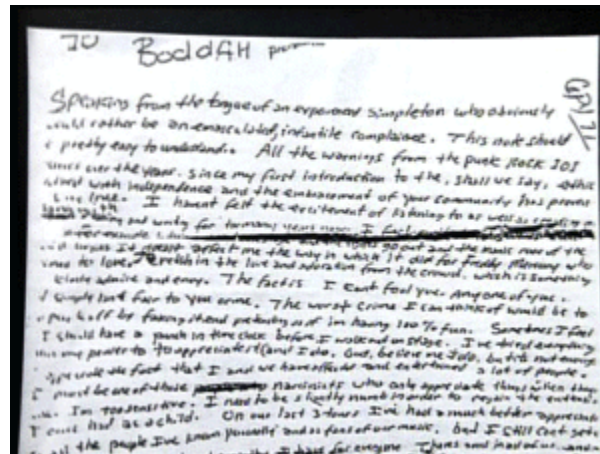 TO BoddAH
Speaking from the tongue of an experienced simpleton who obviously
would rather be an emasculated, infantile complainee. This note should
be pretty easy to understand. All the warnings from the punk Rock 101
over the years. Since my first introduction to the, shall we say, ethics
with independence and the embracement of your community has proven
true. I havent felt the excitement of listening to as well as creating
for too many years now. I feel
go out and the roar of the
affect me the way in which it did for Freddy Mercury who
to love, relish in the love and adoration from the crowd. which is something
admire and envy. The fact is I cant fool you. Any one of you.
simply isnt fair to you or me. The worst crime I can think of would be to
by faking it and pretending as if im having 100% fun. Sometimes I feel
I should have a punch in time clock before I walk out on stage. I've tried everything
my power to appreciate it (and I do. God, believe me I do, but its not enough
the fact that I and we have affected and entertained a lot of people.
I must be one of those narcissists who only appreciate things when they
Im too sensitive. I need to be slightly numb in order to regain the
I once had as a child. On our last 3 tours I've had a much better
all the people I've known personally and as fans of our music, but I still cant get
I have for everyone. in all of us